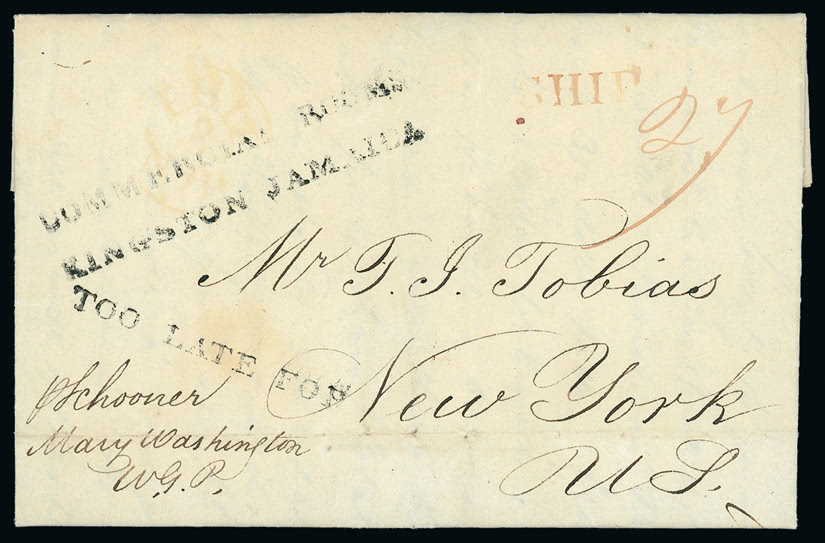 COMMERCIAL ROOMS
KINGSTON JAMAICA
TOO LATE FOR
SHIP
27
Mr T. I. Tobias
New York
U S.
p Schooner
Mary Washington
W.G.P.